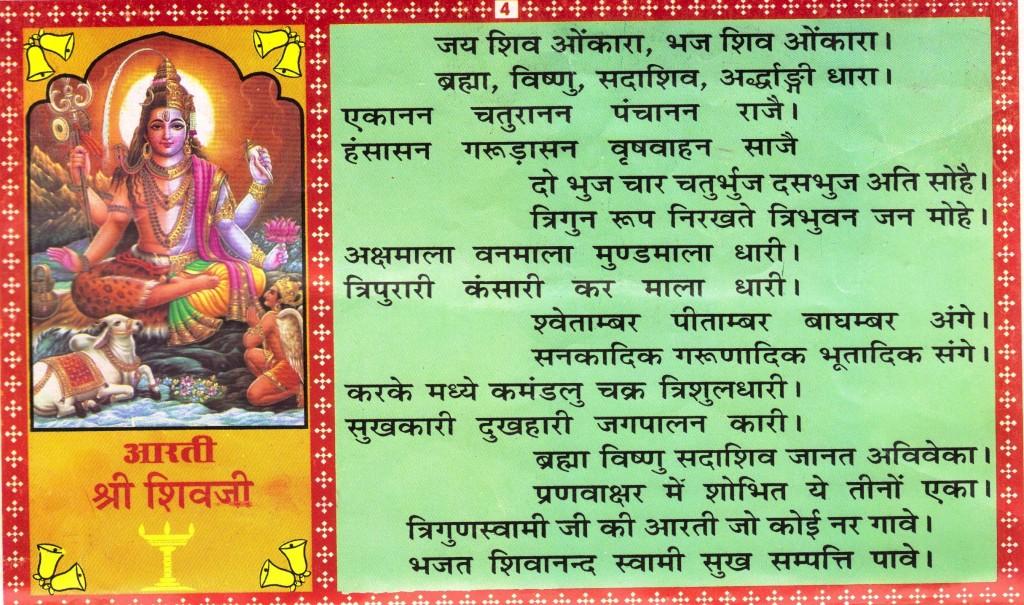 4
जय शिव ओंकारा, भज शिव ओंकारा।
ब्रह्मा, विष्णु, सदाशिव, अर्द्धाङ्गी धारा।
एकानन चतुरानन पंचानन राजै।
हंसासन गरूड़ासन वृषवाहन साजै
दो भुज चार चतुर्भुज दसभुज अति सोहै।
त्रिगुन रूप निरखते त्रिभुवन जन मोहे।
अक्षमाला वनमाला मुण्डमाला धारी।
त्रिपुरारी कंसारी कर माला धारी।
श्वेताम्बर पीताम्बर बाघम्बर अंगे।
सनकादिक गरूणादिक भूतादिक संगे।
करके मध्ये कमंडलु चक्र त्रिशुलधारी।
सुखकारी दुखहारी जगपालन कारी।
ब्रह्मा विष्णु सदाशिव जानत अविवेका।
प्रणवाक्षर में शोभित ये तीनों एका।
त्रिगुणस्वामी जी की आरती जो कोई नर गावे।
भजत शिवानन्द स्वामी सुख सम्पत्ति पावे।
आरती
श्री शिवजी